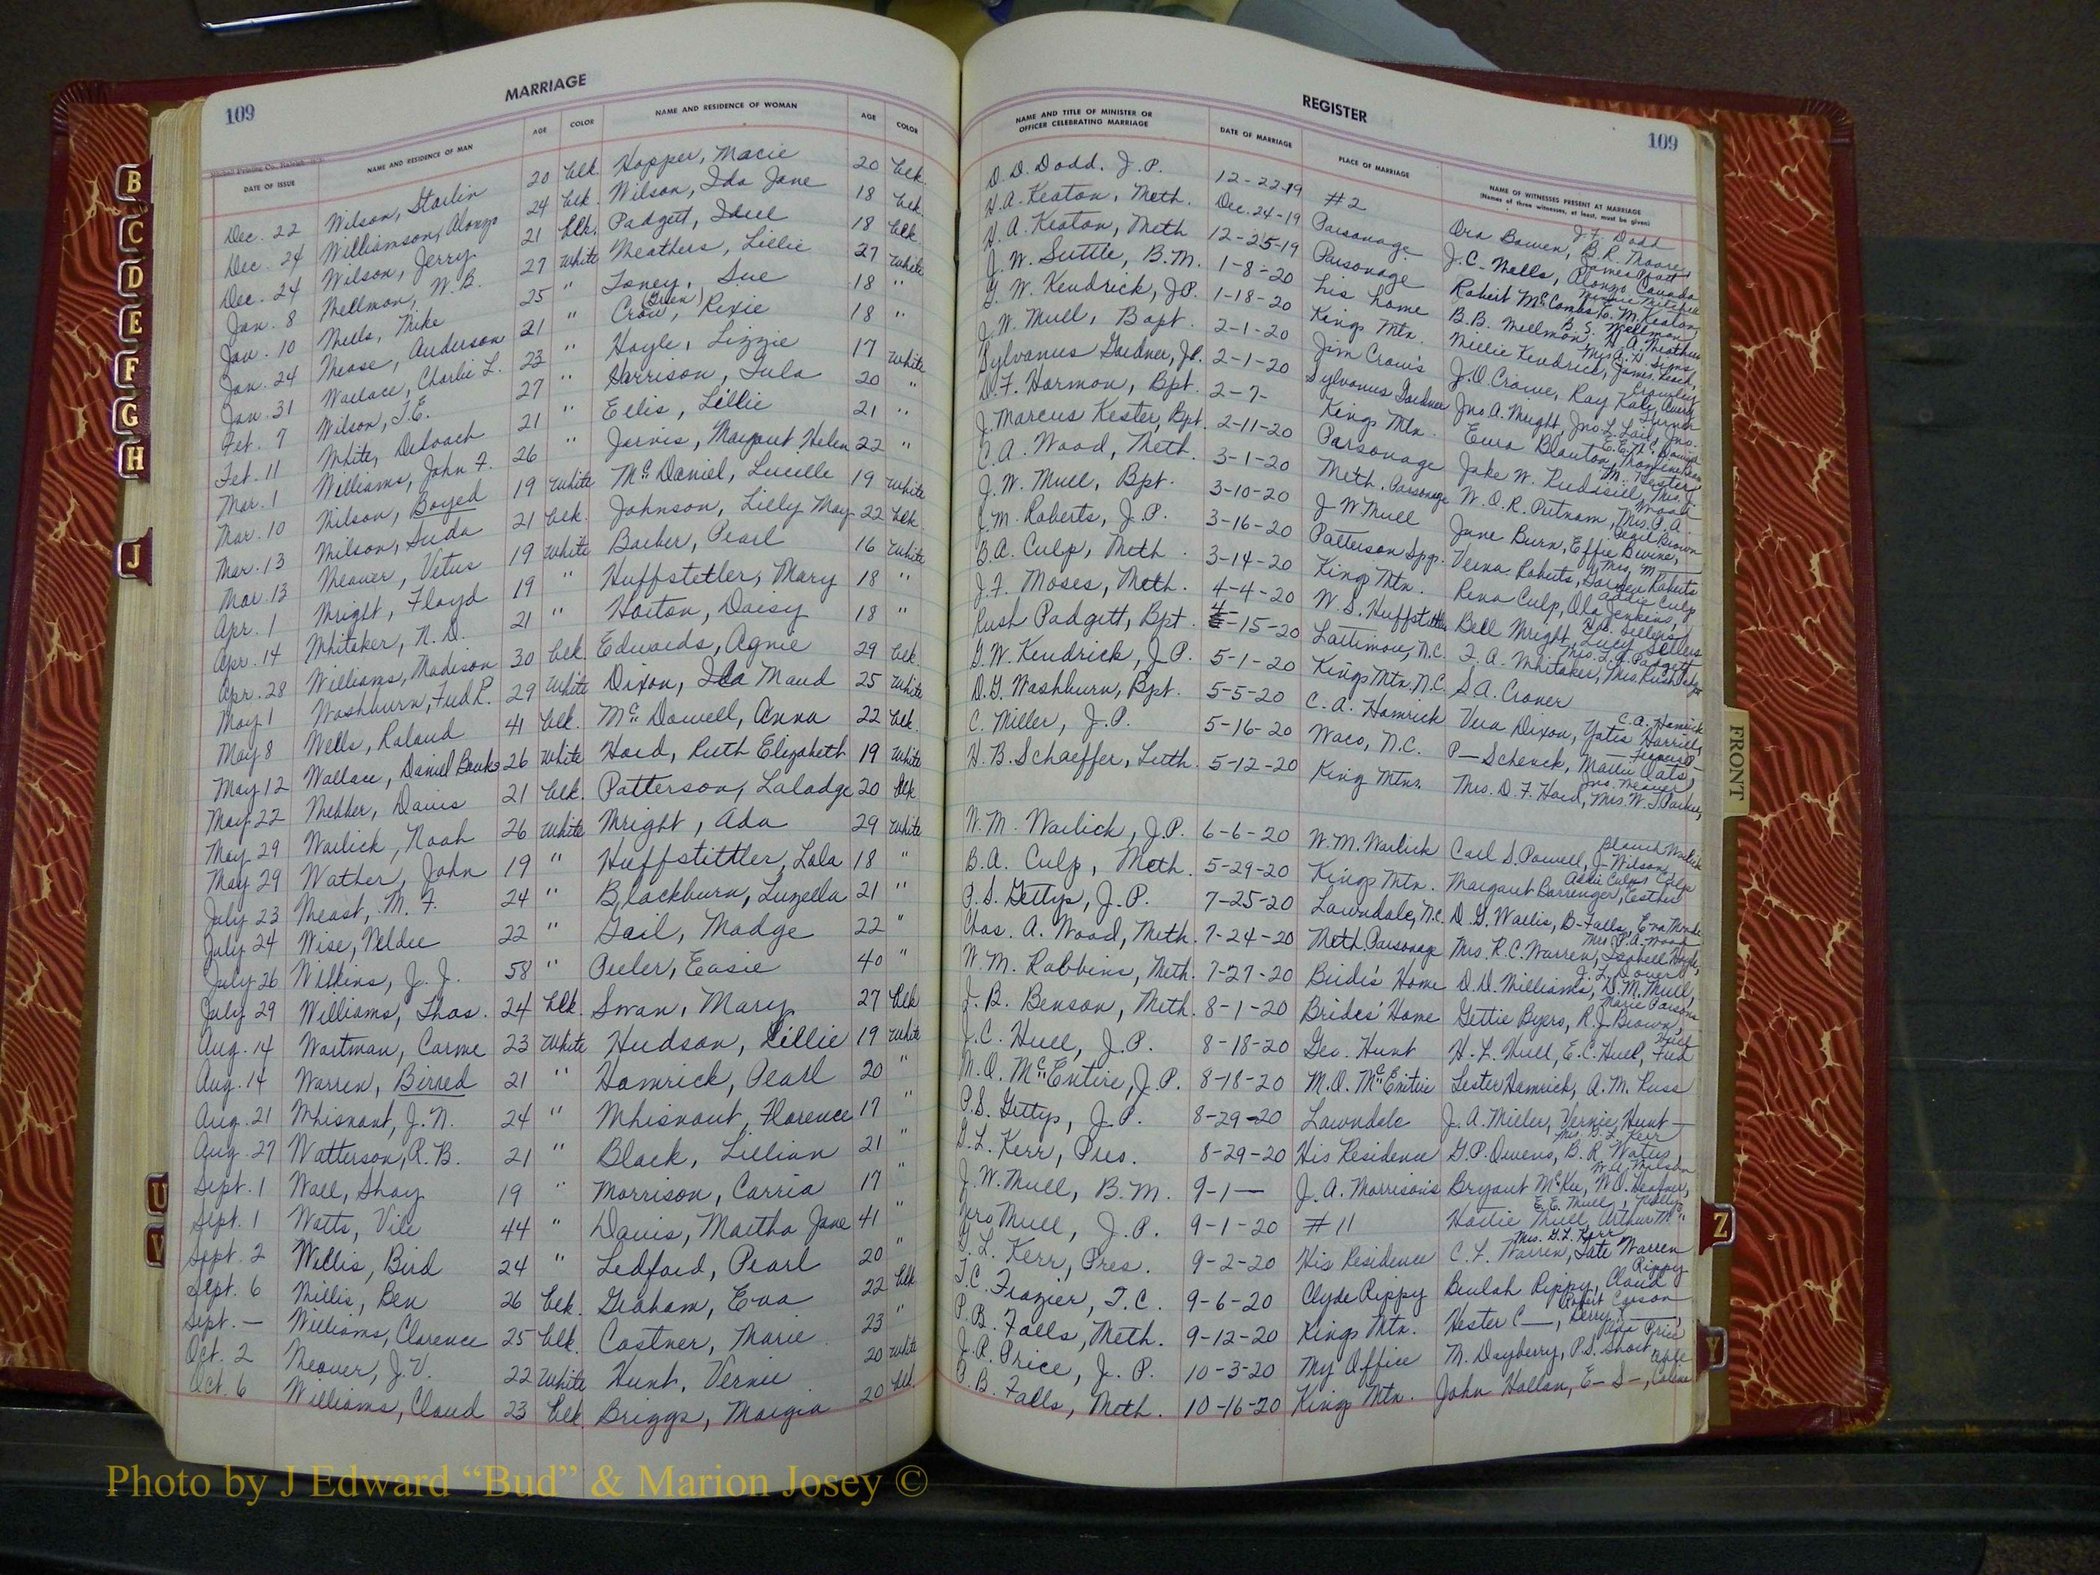 109 MARRIAGE
DATE OF ISSUE NAME AND RESIDENCE OF MAN AGE COLOR NAME AND RESIDENCE OF WOMAN AGE COLOR
Dec. 22 Wilson, Starlin 20 blk. Hopper, Macie 20 blk.
Dec. 24 Williamson, Alonzo 24 blk. Wilson, Ida Jane 18 blk.
Dec. 24 Wilson, Jerry 21 blk. Padgett, Idell 18 blk.
Jan. 8 Wellmon, W. B. 27 white Weathers, Lillie 27 white
Jan. 10 Wells, Mike 25 " Toney, Sue 18 "
Jan. 24 Wease, Anderson 21 " Crow, (Green) Rexie 18 "
Jan. 31 Wallace, Charlie L. 23 " Hoyle, Lizzie 17 white
Fet. 7 Wilson, T.E. 27 " Garrison, Lula 20 "
Fet. 11 White, Deloach 21 " Ellis, Lillie 21 "
Mar. 1 Williams, John F. 26 " Jarvis, Margaret Helen 22 "
Mar. 10 Wilson, Boyed 19 white McDaniel, Lucille 19 white
Mar. 13 Wilson, Suda 21 blk. Johnson, Lilly May 22 blk.
Mar. 13 Weaver, Vetus 19 white Barber, Pearl 16 white
Apr. 1 Wright, Floyd 19 " Huffstetler, Mary 18 "
Apr. 14 Whitaker, N. D. 21 " Horton, Daisy 18 "
Apr. 28 Williams, Madison 30 blk. Edwards, Agnie 29 blk.
May 1 Washburn, Fred R. 29 white Dixon, Ida Maud 25 white
May 8 Wells, Roland 41 blk. McDowell, Anna 22 blk.
May 12 Wallace, Daniel Banks 26 white Hord, Ruth Elizabeth 19 white
May 22 Webber, Davis 21 blk. Patterson, Laladge 20 blk
May 29 Warlick, Noah 26 white Wright, Ada 29 white
May 29 Wather, John 19 " Huffstittler, Lola 18 "
July 23 Weast, M. F. 24 " Blackburn, Luzella 21 "
July 24 Wise, Weldee 22 " Gail, Madge 22 "
July 26 Wilkins, J. J. 58 " Peeler, Easie 40 "
July 29 Williams, Thos. 24 blk. Swan, Mary 27 blk
Aug. 14 Wortman, Carme 23 white Hudson, Lillie 19 white
Aug. 14 Warren, Birred 21 " Hamrick, Pearl 20 "
Aug. 21 Whisnant, J. N. 24 " Whisnant, Florence 17 "
Aug. 27 Watterson, R. B. 21 " Black, Lillian 21 "
Sept. 1 Wall, Shay 19 " Morrison, Carria 17 "
Sept. 1 Watts, Vile 44 " Davis, Martha Jane 41 "
Sept. 2 Willis, Bird 24 " Ledford, Pearl 20 "
Sept. 6 Willis, Ben 26 blk. Graham, Eva 22 blk.
Sept. — Williams, Clarence 25 blk. Costner, Marie 23 "
Oct. 2 Weaver, J. V. 22 white Hunt, Vernie 20 white
Oct. 6 Williams, Cloud 23 blk Briggs, Margia 20 bl.
REGISTER 109
NAME AND TITLE OF MINISTER OR OFFICER CELEBRATING MARRIAGE DATE OF MARRIAGE PLACE OF MARRIAGE NAME OF WITNESSES PRESENT AT MARRIAGE
(Names of three witnesses, at least, must be given)
D. D. Dodd, J. P. 12-22-19 #2 Ora Bowen, B. R. Moore, J. F. Dodd
H. A. Keaton, Meth. Dec. 24-19 Parsonage J. C. Wells, Alonzo
H. A. Keaton, Meth 12-25-19 Parsonage Robert McCombs, M. Keaton
J. W. Suttle, B. M. 1-8-20 his home B. B. Wellmon, B. S. Wellmon
G. W. Kendrick, J.P. 1-18-20 Kings Mtn. Nellie Kendrick, James Leach,
J. W. Mull, Bapt. 2-1-20 Jim Crow's J. O. Crowe, Ray
Sylvanus Gardner, J.P. 2-1-20 Sylvanus Gardner Jno. A. Wright, Jno. L. Lail, Jno.
D. F. Harmon, Bpt. 2-7- Kings Mtn. Eura Blanton,
J. Marcus Kester, Bpt. 2-11-20 Parsonage Jake W. Ruddsill, M. Kester
C. A. Wood, Meth. 3-1-20 Meth. Parsonage W. O. R. Putnam, Mrs. C. A. Wood
J. W. Mull, Bpt. 3-10-20 J W Mull June Burn, Effie
J. M. Roberts, J. P. 3-16-20 Patterson Spgs. Verna Roberts, Roberts
B. A. Culp, Meth. 3-14-20 Kings Mtn. Rena Culp, Ola Jenkins, Addie Culp
J. F. Moses, Meth. 4-4-20 W. S. Huffstetler Bell Wright, Lucy Sellers
Rush Padgett, Bpt. 4-15-20 Lattimore, N.C. F. A. Whitaker, Mrs. Rush Padgett
G. W. Kendrick, J. P. 5-1-20 Kings Mtn. N.C. S. A. Crouer
D. G. Washburn, Bpt. 5-5-20 C. A. Hamrick Vera Dixon, Yates Harrill, C. A. Hamrick
C. Miller, J. P. 5-16-20 Waco, N.C. P — Schenck, Mattie Oats,
H. B. Schaeffer, Luth. 5-12-20 King Mtn. Mrs. D. F. Hord, Mrs. W. T. Parker, Jno. Weaver
W. M. Warlick, J.P. 6-6-20 W. M. Warlick Carl S. Powell, J. Wilson, Blanch Warlick
B. A. Culp, Meth. 5-29-20 Kings Mtn. Margaret Barrenger, Esther Culp
P. S. Gettys, J. P. 7-25-20 Lawndale, N.C. D. G. Wallis, B- Falls,
Chas. A. Wood, Meth. 7-24-20 Meth. Parsonage Mrs. R. C. Warren, Isabell Hoyle, Mrs. C. A. Wood
W. M. Robbins, Meth. 7-27-20 Bride's Home D. D. Williams, D. M. Mull, J. L. Dover
J. B. Benson, Meth. 8-1-20 Brides' Home Gettie Byers, R. J. Brown, Marie Parsons
J. C. Hull, J. P. 8-18-20 Geo. Hunt H. L. Hull, E. C. Hull, Fred Hull
M. O. McEntire, J. P. 8-18-20 M. O. McEntire Lester Hamrick, A. M. Russ
P. S. Gettys, J. P. 8-29-20 Lawndale J. A. Miller, Vernie Hunt —
G. L. Kerr, Pres. 8-29-20 His Residence G. P. Owens, B. R. Watts, Mrs. G. L. Kerr
J. W. Mull, B. M. 9-1 — J. A. Morrison's Bryant McKee, W. A. Wilson
Jno Mull, J. P. 9-1-20 #11 Hattie Mull, Arthur Mc" E. E. Mull
G. L. Kerr, Pres. 9-2-20 His Residence C. L. Warren, Tate Warren Mrs. G. L. Kerr
T. C. Frazier, T. C. 9-6-20 Clyde Rippy Beulah Rippy, Cloud Rippy
P. B. Falls, Meth. 9-12-20 Kings Mtn. Hester C—, Berry —, Robert Carson
J. R. Price, J. P. 10-3-20 My Office M. Dayberry, P. S. Short, Ada Price
P. B. Falls, Meth. 10-16-20 Kings Mtn. John Hallan, E— S—,
B
C
D
E
F
G
H
J
U
V
FRONT
Z
Y
Photo by J Edward “Bud” & Marion Josey ©